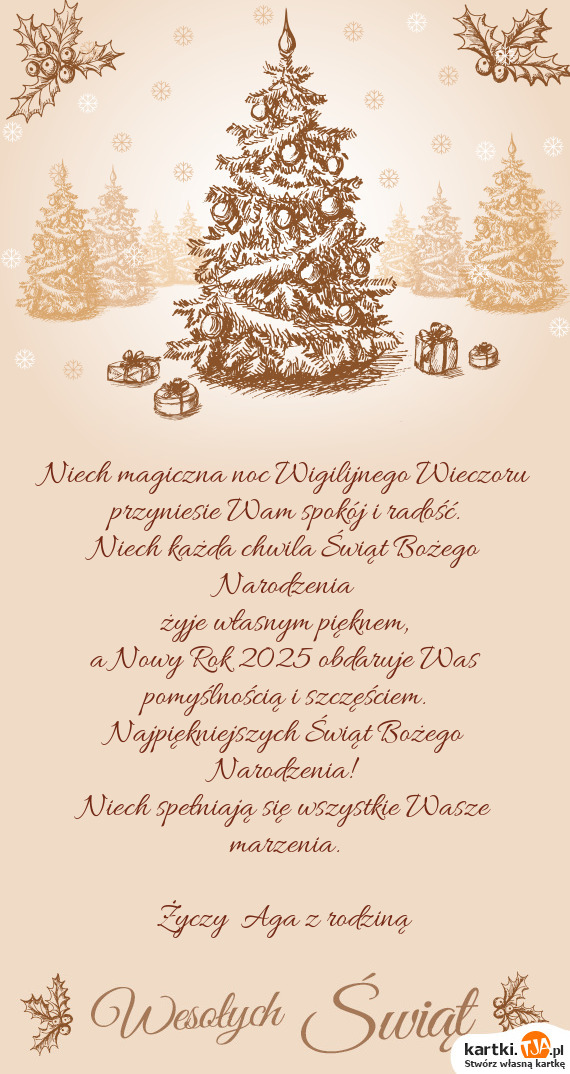 Niech magiczna noc Wigilijnego Wieczoru
przyniesie Wam spokój i radość.
Niech każda chwila Świąt Bożego
Narodzenia
żyje własnym pięknem,
a Nowy Rok 2025 obdaruje Was
pomyślnością i szczęściem.
Najpiękniejszych Świąt Bożego
Narodzenia!
Niech spełniają się wszystkie Wasze
marzenia.
Życzy Aga z rodziną
Wesołych Świąt
kartki.TJA.pl
Stwórz własną kartkę